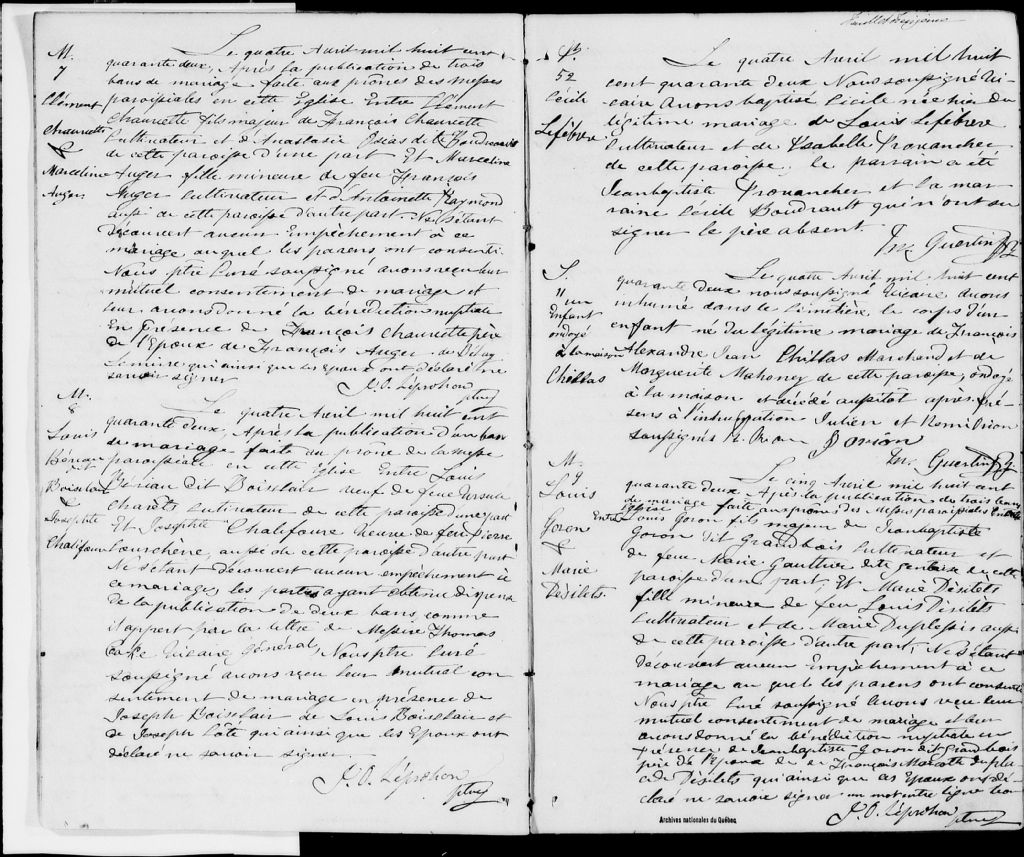 M.
7
Clément
Chaurette
&
Marceline
Auger
Le quatre Avril mil huit cent
quarante deux, Après la publication de trois
bans de mariage faite aux prônes des messes
paroissiales en cette Eglise Entre Clément
Chaurette fils majeur de François Chaurette
Cultivateur et d'Anastasie dite Boudreault
de cette paroisse d'une part Et Marceline
Auger fille mineure de feu François
Auger Cultivateur et d'Antoinette Raymond
aussi de cette paroisse d'autre part Ne s'étant
découvert aucun Empêchement à ce
mariage auquel les parens ont consenti
Nous ptre Curé soussigné avons reçu leur
mutuel consentement de mariage et
leur avons donné la bénédiction nuptiale
En présence de François Chaurette père
de l'Epoux de François Auger de
Lemire qui ainsi que les Epoux ont déclaré ne
savoir signer
J. O. Léprohon
ptre
M.
8
Louis
dit
Boisclair
&
Josephte
Chalifoure
Le quatre Avril mil huit cent
quarante deux, Après la publication d'un ban
de mariage faite au prône de la messe
paroissiale en cette Eglise Entre Louis
dit Boisclair veuf de feue Ursule
Charets Cultivateur de cette paroisse d'une part
Et Josephte Chalifoure veuve de feu Pierre
aussi de cette paroisse d'autre part
Ne s'étant découvert aucun empêchement à
ce mariage, les parties ayant obtenu dispense
de la publication de deux bans, comme
il appert par la lettre de Messire Thomas
Cooke Vicaire Général, Nous ptre Curé
soussigné avons reçu leur mutuel con
sentement de mariage en présence de
Joseph Boisclair de Louis Boisclair et
de Joseph Côté qui ainsi que les Epoux ont
déclaré ne savoir signer
J. O. Léprohon
ptre
B.
52
Cécile
Lefebvre
Le quatre Avril mil huit
cent quarante deux Nous soussigné Vi-
caire avons baptisé Cécile née hier du
légitime mariage de Louis Lefebvre
Cultivateur et de Ysabelle Provancher
de cette paroisse. le parrain a été
Jeanbaptiste Provancher et la mar
raine Cécile Boudrault qui n'ont su
signer le père absent.
Guertin
S.
11
un
Enfant
ondoyé
à la maison
Chillas
Le quatre Avril mil huit cent
quarante deux nous soussigné Vicaire avons
inhumé dans le Cimetière le corps d'un
enfant né du légitime mariage de François
Alexandre Jean Chillas Marchand et de
Marguerite Mahoney de cette paroisse, ondoyé
à la maison et décédé aussitot après pré-
sens à l'inhumation Julien et Romi Dorion
soussignés
Dorion
Guertin
M.
9
Louis
Goron
&
Marie
Désilets.
Le cinq Avril mil huit cent
quarante deux Après la publication de trois bans
de mariage faite aux prônes des Messes paroissiales en cette
Eglise Entre Louis Goron fils majeur de Jeanbaptiste
Goron dit Grandbois Cultivateur et
de feue Marie Gauthier de cette
paroisse d'une part, Et Marie Désilets
fille mineure de feu Louis Désilets
Cultivateur et de Marie Duplessis aussi
de cette paroisse d'autre part, Ne s'étant
découvert aucun Empêchement à ce
mariage auquel les parens ont consenti
Nous ptre Curé soussigné avons reçu leur
mutuel consentement de mariage et leur
avons donné la bénédiction nuptiale en
présence de Jeanbaptiste Goron dit Grandbois
père de l'Epoux de François Marcotte
de Désilets qui ainsi que les Epoux ont dé
claré ne savoir signer un mot entre ligne bon
J. O. Léprohon
ptre
Archives nationales du Québec